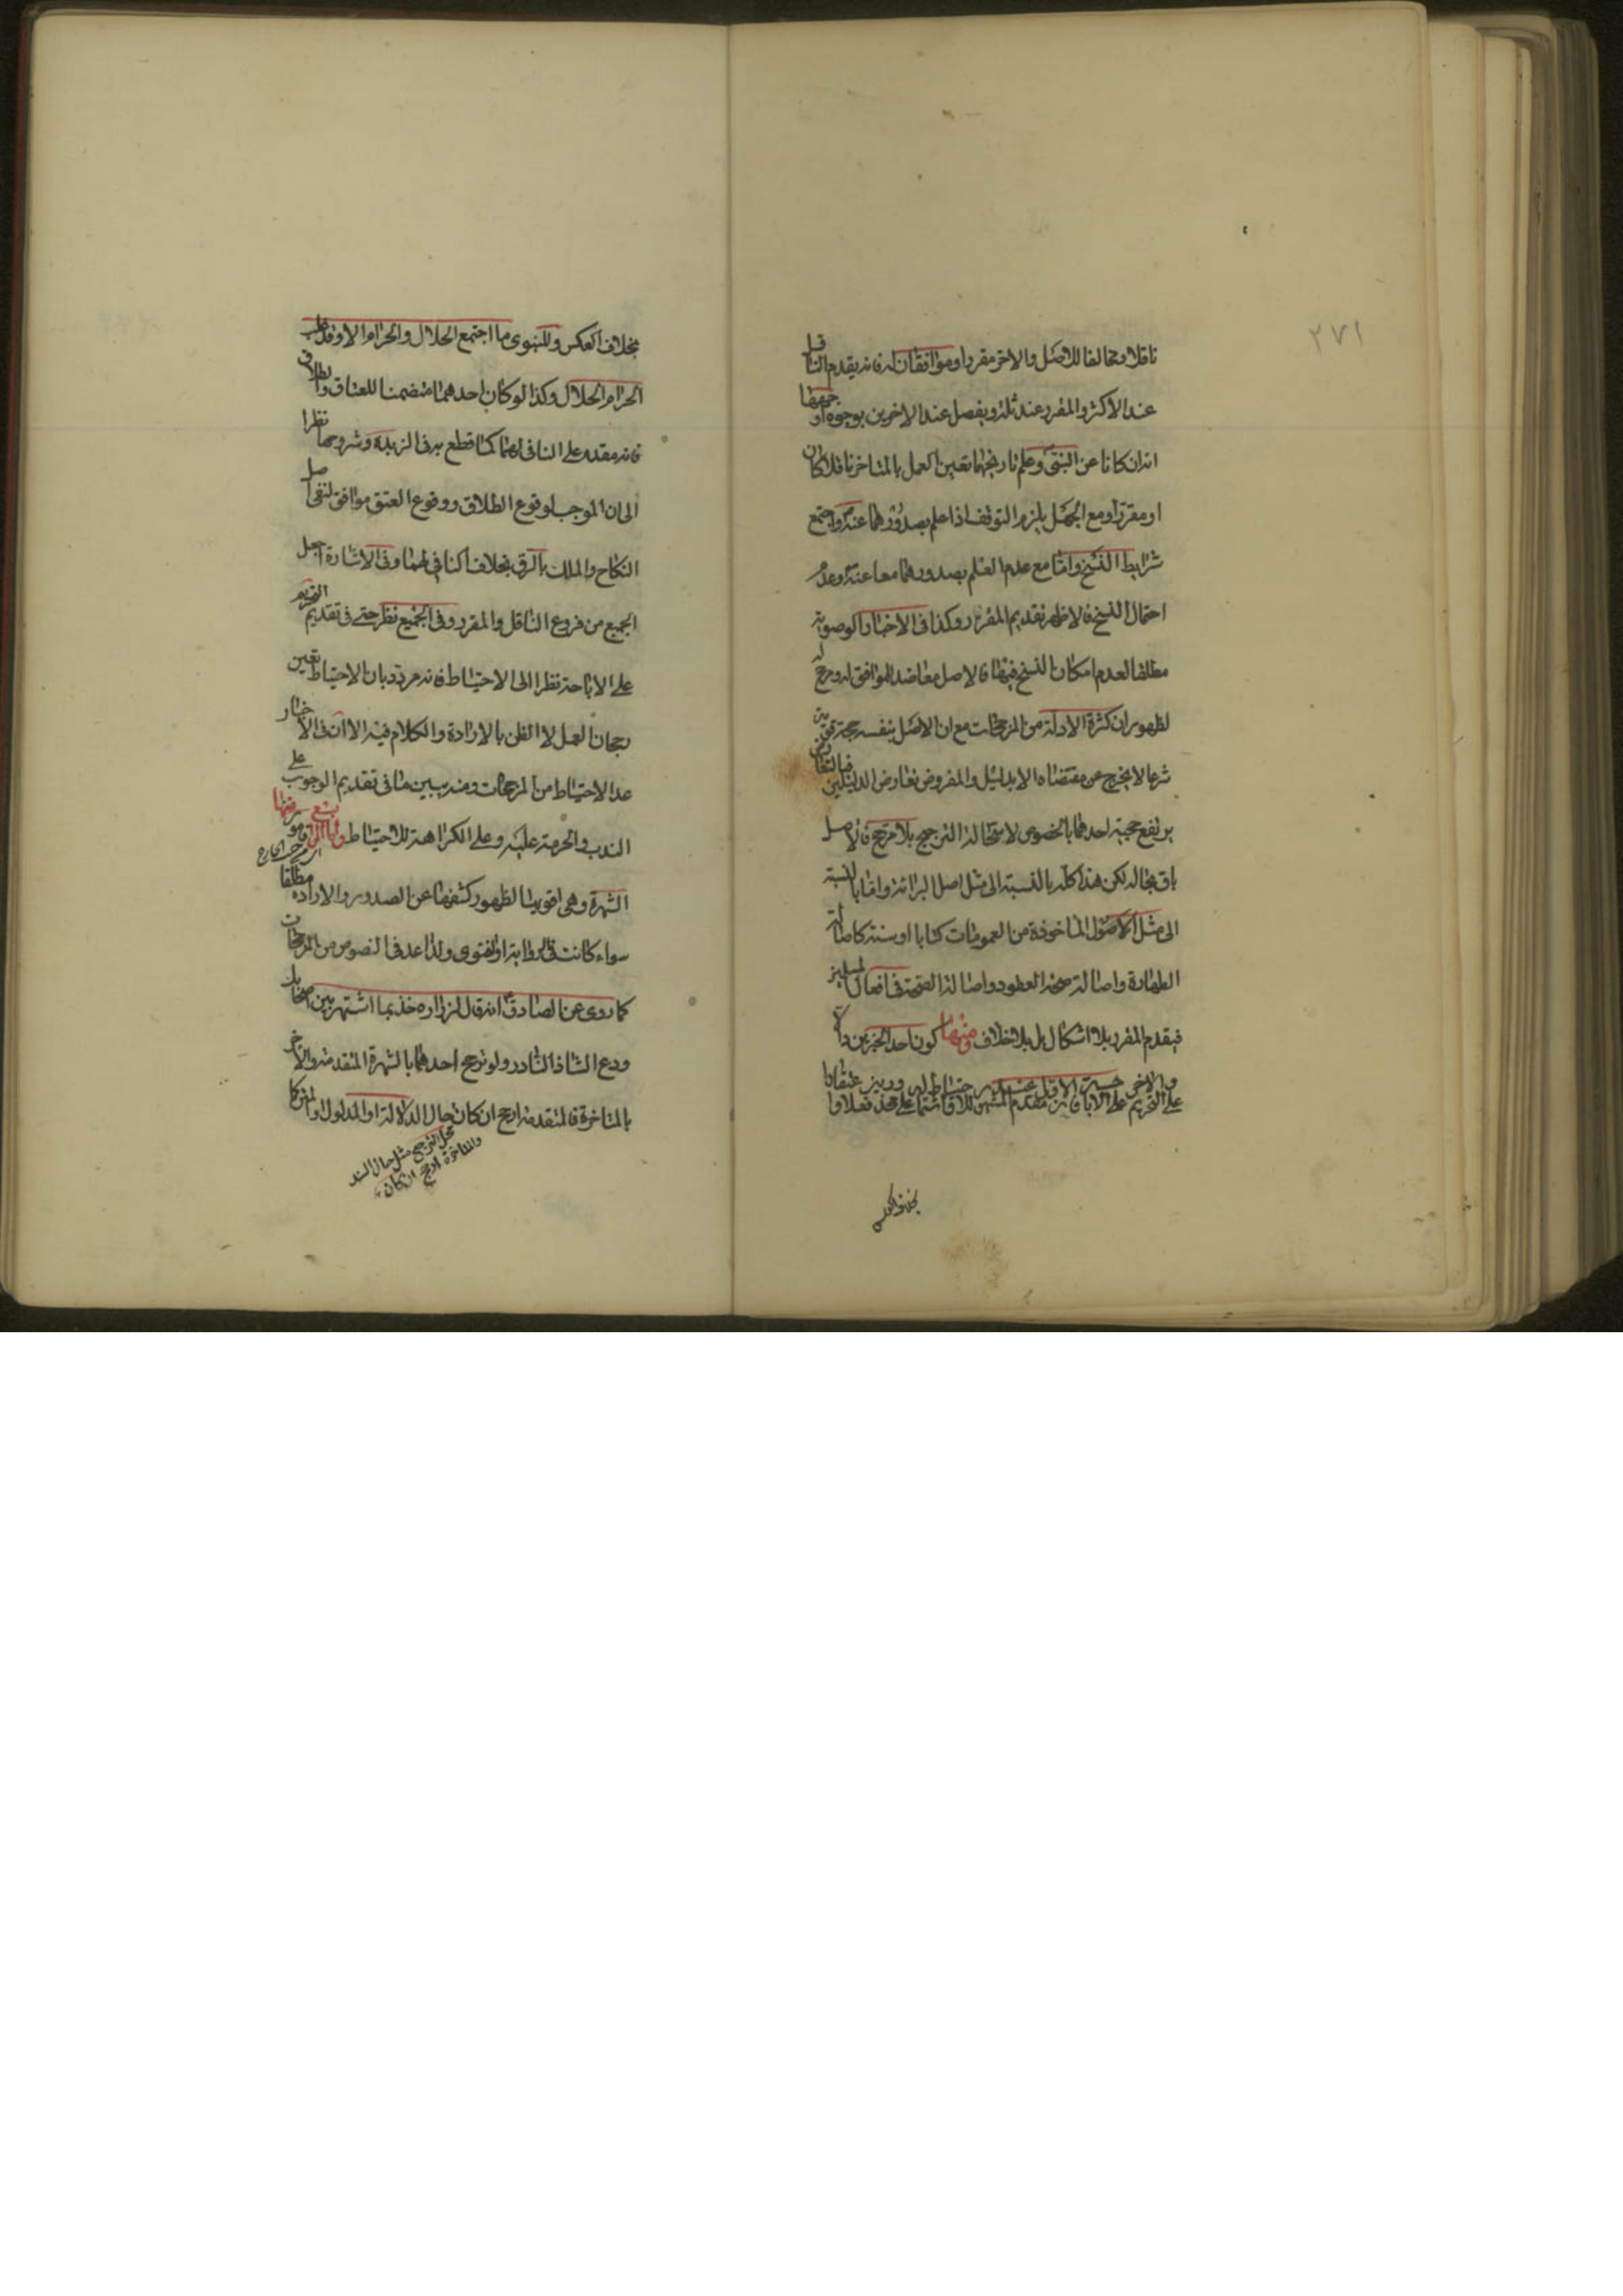 ٢٧١
ناقلا ومخالفا للاصل والاخر مقررا وموافقا له فانه يقدم الناقل
عند الاكثر والمقرر عند ثلة ويفصل عند الاخرين بوجوه
انه ان كانا عن النبي وعلم تاريخهما تعين العمل بالمتاخر ناقلا كان
او مقررا ومع الجهل يلزم التوقف اذا علم بصدورهما عنه واجتمع
شرايط النسخ واما مع عدم العلم بصدورهما معا عنه وعدم
احتمال النسخ فالاظهر تقديم المقرر وكذا في الاخبار الوصوية
مطلقا لعدم امكان النسخ فيها فالاصل معاضد للموافق له ومرجح له
لظهور ان كثرة الادلة من المرجحات مع ان الاصل بنفسه حجة قوية
شرعا لا يخرج عن مقتضاه الا بدليل والمفروض تعارض الدليلين فبالتعارض
يرتفع حجية احدهما بالخصوص لاستحالة الترجيح بلا مرجح فالاصل
باق بحاله لكن هذا كله بالنسبة الى مثل اصل البرائة واما بالنسبة
الى مثل الاصول الماخوذة من العمومات كتابا او سنة كاصالة
الطهارة واصالة صحة العقود واصالة الصحة في افعال المسلمين
فيقدم المقرر بلا اشكال بل بلا خلاف ومنها كون احد الخبرين دالا
على التحريم
بخلاف العكس وللنبوي ما اجتمع الحلال والحرام الا وقد غلب
الحرام الحلال وكذا لو كان احدهما متضمنا للعتاق والطلاق
فانه مقدم على النافي لهما كما قطع به في الزبدة وشروحها نظرا
الى ان الموجب لوقوع الطلاق ووقوع العتق موافق لنفي اصل
النكاح والملك بالرق بخلاف النافي لهما وفي الاشارة جعل
الجميع من فروع الناقل والمقرر وفي الجميع نظر حتى في تقديم التحريم
على الاباحة نظرا الى الاحتياط فانه مردود بان الاحتياط تعين
رجحان العمل لا الظن بالارادة والكلام فيه الا ان في الاخبار
عد الاحتياط من المرجحات ومنه يبين ما في تقديم الوجوب على
الندب والحرمة عليه وعلى الكراهة للاحتياط واما الرابع
الشهرة وهي اقويها لظهور كشفها عن الصدور والارادة مطلقا
سواء كانت في الرواية او الفتوى ولذا عد في النصوص من المرجحات
كما روى عن الصادق انه قال لزرارة خذ بما اشتهر بين اصحابك
ودع الشاذ النادر ولو ترجح احدهما بالشهرة المتقدمة والاخر
بالمتاخرة فالمتقدمة ارجح ان كان حال الدلالة او المدلول
والمتاخرة ارجح ان كان
محل الترجيح مثل حال السند